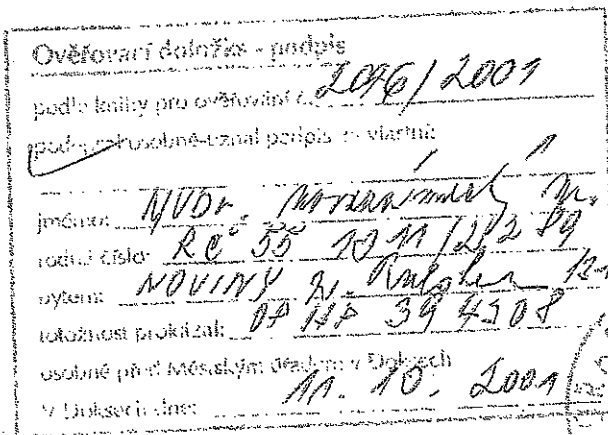 Ověřovací doložka - podpis
podle knihy pro ověřování č. 2096/2001
podepsal osobně-uznal podpis za vlastní:
jméno: MVDr.
rodné číslo: RČ 55 1011/2289
bytem: NOVINY
totožnost prokázal: OP HP 394308
osobně před Městským úřadem v Doksech
V Doksech dne: 11. 10. 2001